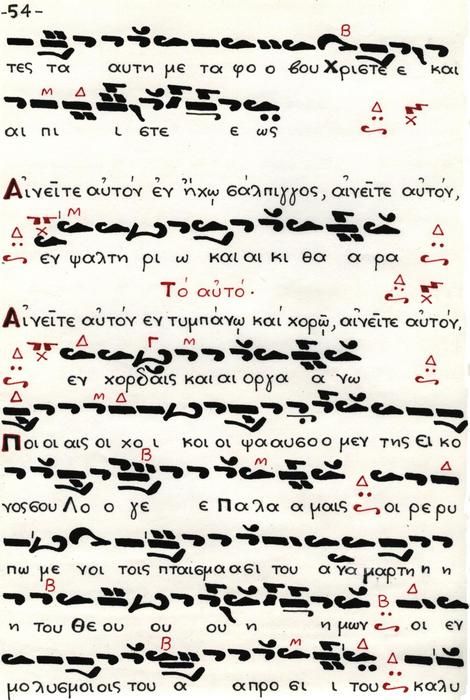 -54-
τες τα αυτη με τα φο ο βου Χριστε ε και
αι πι ι στε ε ως
Αἰνεῖτε αὐτόν ἐν ἤχῳ σάλπιγγος, αἰνεῖτε αὐτόν,
εν ψαλτη ρι ω και αι κι θα α ρα
Τό αὐτό.
Αἰνεῖτε αὐτόν εν τυμπάνῳ καί χορῷ, αἰνεῖτε αὐτόν,
εν χορδαις και αι οργα α νω
Ποι οι αις οι χο ι κοι οι ψα αυσο ο μεν της Ει κο
νος σου Λο ο γε ε Πα λα α μαις οι ρε ρυ
πω με νοι τοις πταισμα ασι του α γα μαρτη η η
η του Θε ου ου ου η η μων οι εν
μο λυσμοι οις του α α προ σι ι του καλυ